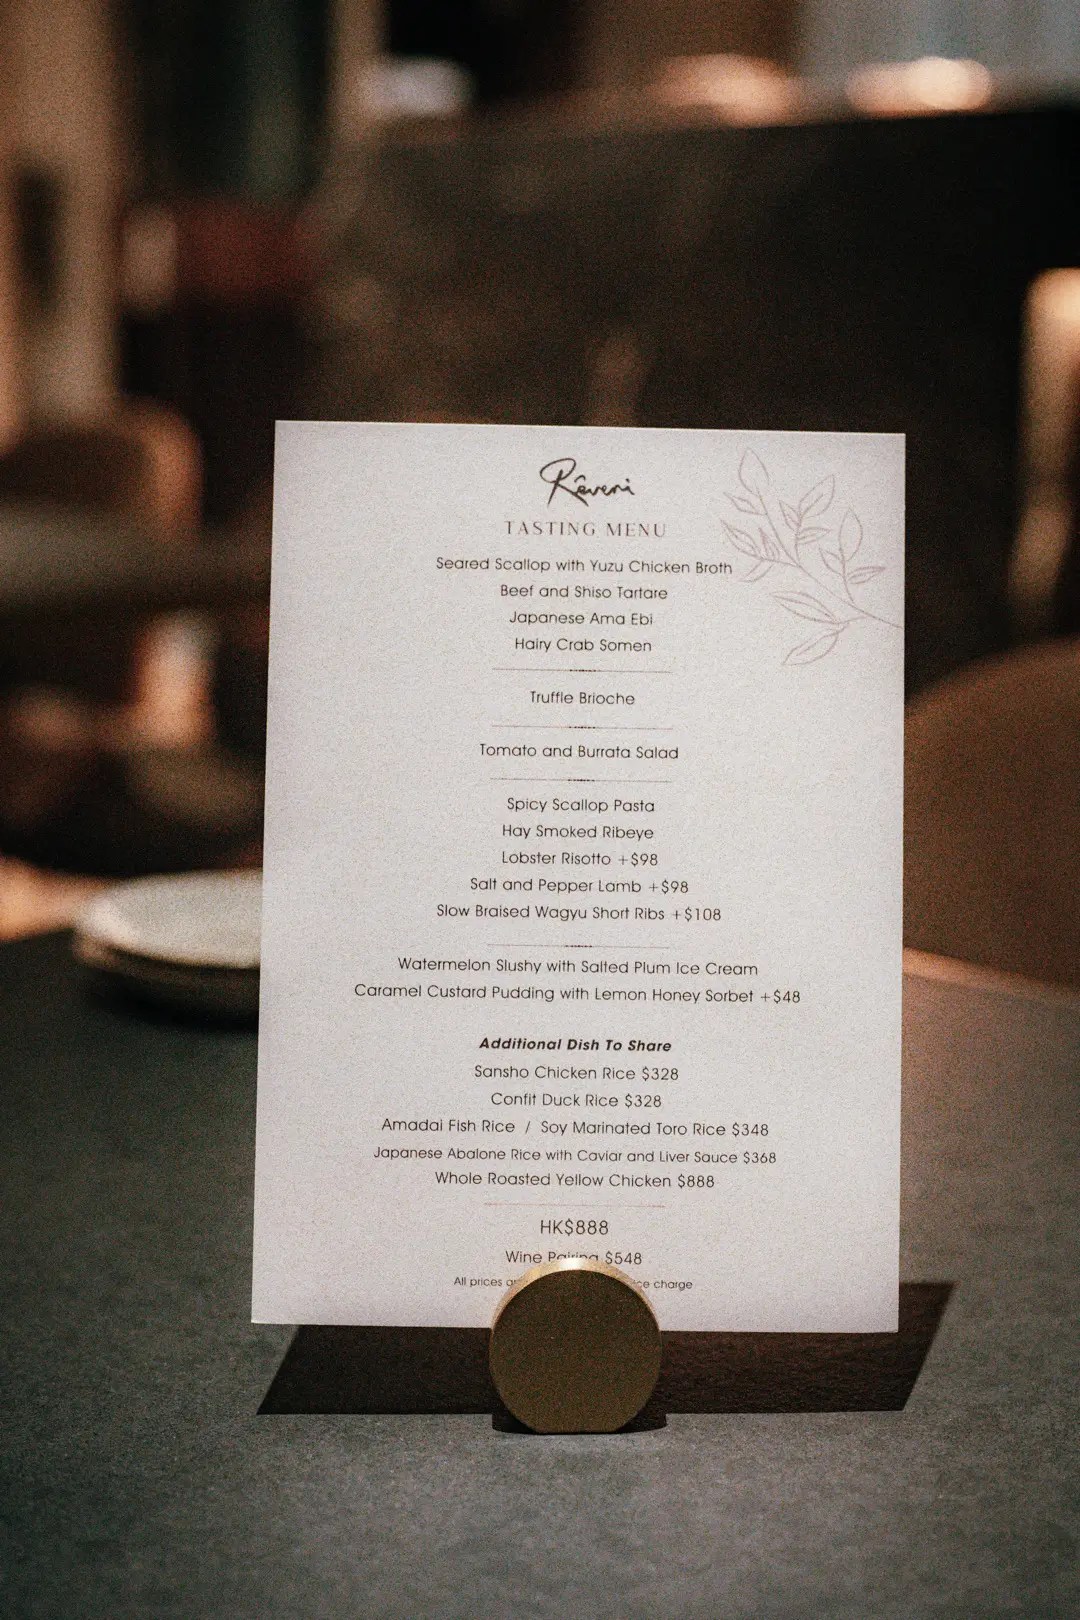 Rêveri
TASTING MENU
Seared Scallop with Yuzu Chicken Broth
Beef and Shiso Tartare
Japanese Ama Ebi
Hairy Crab Somen
Truffle Brioche
Tomato and Burrata Salad
Spicy Scallop Pasta
Hay Smoked Ribeye
Lobster Risotto +$98
Salt and Pepper Lamb +$98
Slow Braised Wagyu Short Ribs +$108
Watermelon Slushy with Salted Plum Ice Cream
Caramel Custard Pudding with Lemon Honey Sorbet +$48
Additional Dish To Share
Sansho Chicken Rice $328
Confit Duck Rice $328
Amadai Fish Rice / Soy Marinated Toro Rice $348
Japanese Abalone Rice with Caviar and Liver Sauce $368
Whole Roasted Yellow Chicken $888
HK$888
Wine Pairing $548
All prices charge